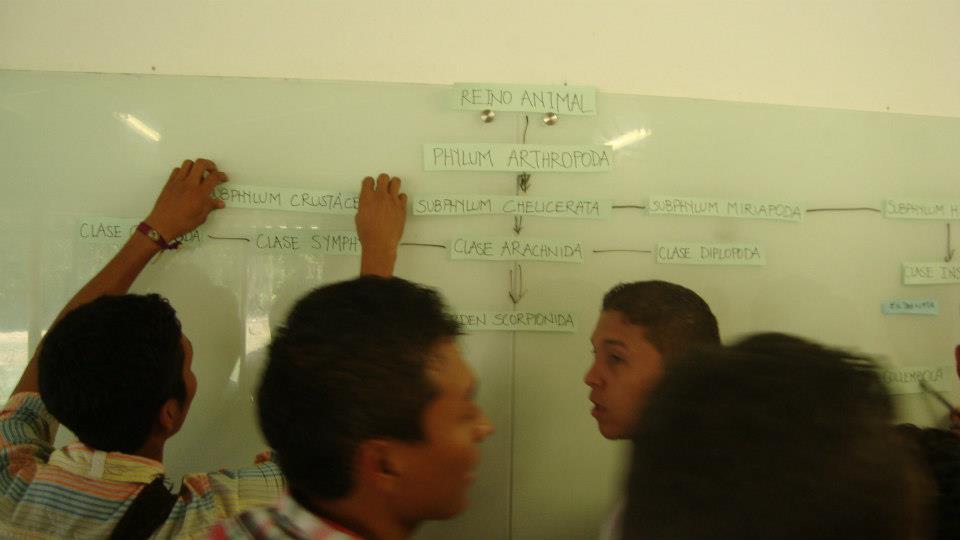 REINO ANIMAL
PHYLUM ARTHROPODA
SUBPHYLUM CRUSTÁCE
SUBPHYLUM CHELICERATA
SUBPHYLUM MIRIAPODA
SUBPHYLUM H
CLASE
CLASE SYMPH
CLASE ARACHNIDA
CLASE DIPLOPODA
CLASE INS
ORDEN SCORPIONIDA
COLLEMBOLA